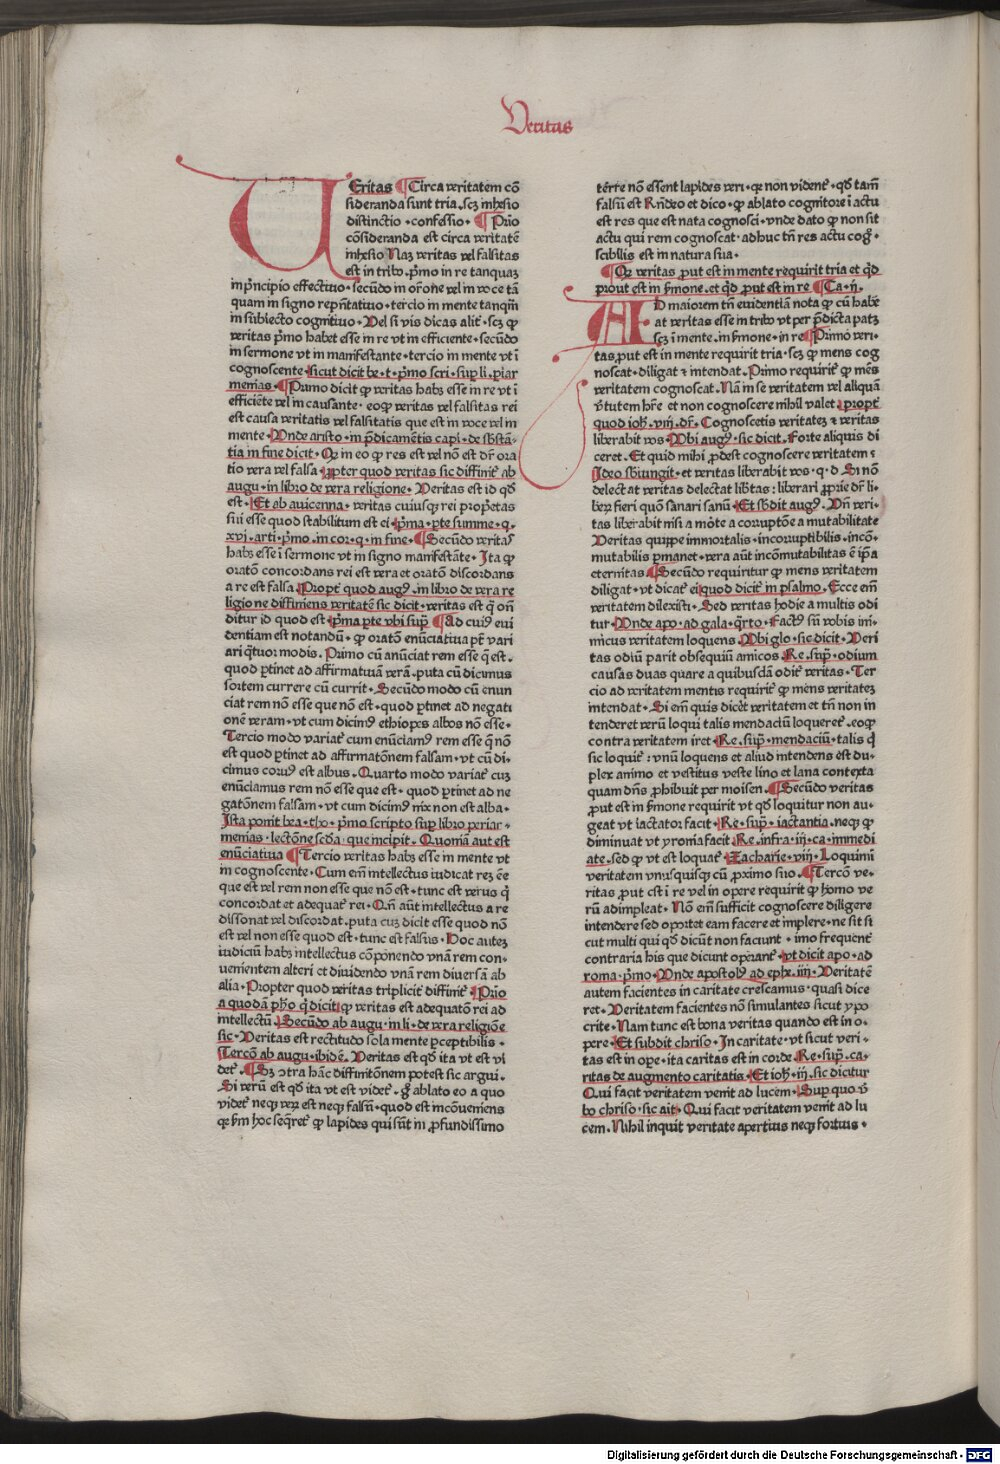 Veritas
VEritas ¶ Circa veritatem cō
sideranda sunt tria. scȝ inhesio
distinctio · confessio · ¶ Prīo
cōsideranda est circa veritatē
inhesio Naȝ veritas vel falsitas
est in tribꝰ. pͥmo in re tanquaȝ
in pͥncipio effectiuo · secūdo in orōne vel in voce tā
quam in signo repn̄tatiuo · tercio in mente tanqm̄
in subiecto cognitiuo · Vel si vis dicas alit̄ · scȝ ꝙ
veritas pͥmo habet esse in re vt in efficiente · secūdo
in sermone vt in manifestante · tercio in mente vt ī
cognoscente · sicut dicit be · t · pͥmo scri · sup̄ li · ꝑiar
menias · ¶ Primo dicit ꝙ veritas habȝ esse in re vt ī
efficiēte vel in causante · eoꝙ veritas vel falsitas rei
est causa veritatis vel falsitatis que est in voce vel in
mente · Vnde aristo · in p̄dicamētis capi · de sb̄stā-
tia in fine dicit · Qꝛ in eo ꝙ res est vel nō est dr̄ ora
tio vera vel falsa ꝓpter quod veritas sic diffinit᷑ ab
augu · in libro de vera religione · Veritas est id qd̄
est · Et ab auicenna · veritas cuiusqȝ rei propͥetas
sui esse quod stabilitum est ei · pͥma · ꝑte summe · q ·
xvi · arti · pͥmo · in cor · q · in fine · ¶ Secūdo veritas
habȝ esse ī sermone vt in signo manifestāte · Ita ꝙ
oratō concordans rei est vera et oratō discordans
a re est falsa · Propt̄ quod augꝰ · in libro de vera re
ligione diffiniens veritatē sic dicit · veritas est q̄ on̄
ditur id quod est · pͥma ꝑte vbi sup̄ ¶ Ad cuiꝰ eui
dentiam est notandū · ꝙ oratō enūciatiua pt̄ vari
ari q̄tuor modis · Primo cū anūciat rem esse q̄ est ·
quod ꝑtinet ad affirmatiuā verā · puta cū dicimus
sortem currere cū currit · Secūdo modo cū enun
ciat rem nō esse que nō est · quod ꝑtinet ad negati
onē veram · vt cum dicimꝰ ethiopes albos nō esse ·
Tercio modo variat᷑ cum enūciamꝰ rem esse q̄ nō
est quod ꝑtinet ad affirmatōnem falsam · vt cū di-
cimus coruꝰ est albus · Quarto modo variat᷑ cuȝ
enūciamus rem nō esse que est · quod ꝑtinet ad ne
gatōnem falsam · vt cum dicimꝰ nix non est alba ·
Ista ponit bea · tho · pͥmo scripto sup̄ libro periar-
menias · lectōne scd̄a · que incipit · Quoniā aut est
enūciatiua ¶ Tercio veritas habȝ esse in mente vt
in cognoscente · Cum em̄ intellectus iudicat reȝ ēe
que est vel rem non esse que nō est · tunc est verus q̄
concordat et adequat᷑ rei · Qn̄ aūt intellectus a re
dissonat vel discordat · puta cuȝ dicit esse quod nō
est vel non esse quod est · tunc est falsus · Hoc auteȝ
iudiciū habȝ intellectus cōponendo vnā rem con-
uenientem alteri et diuidendo vnā rem diuersā ab
alia · Propter quod veritas tripliciter diffinit᷑ · Prīo
a quodā pho q̄ dicit ꝙ veritas est adequatō rei ad
intellectū · Secūdo ab augu · in li · de vera religiōe
sic · Veritas est rectitudo sola mente ꝑceptibilis ·
Tercō ab augu · ibidē · Veritas est qd̄ ita vt est vi
det᷑ · ¶ Sȝ ɔtra hāc diffinitōnem potest sic argui ·
Si verū est qd̄ ita vt est videt᷑ · g° ablato eo a quo
videt᷑ neqȝ verȝ est neqȝ falsū · quod est incōueniens
qꝛ sm̄ hoc seq̄ret᷑ ꝙ lapides qui sūt in ꝓfundissimo
terre nō essent lapides veri · qꝛ non vident᷑ · qd̄ tam̄
falsū est Rn̄deo et dico · ꝙ ablato cognitore ī actu
est res que est nata cognosci · vnde dato ꝙ non sit
actu qui rem cognoscat · adhuc tn̄ res actu cog-
scibilis est in natura sua ·
¶ Qꝛ veritas ꝓut est in mente requirit tria et qd̄
prout est in ẜmone · et qd̄ ꝓut est in re ¶ Ca · ij ·
AD maiorem tn̄ euidentiā nota ꝙ cū habe-
at veritas esse in tribꝰ vt per p̄dicta patȝ
scȝ ī mente · in ẜmone · in re ¶ Primo veri-
tas ꝓut est in mente requirit tria · scȝ ꝙ mens cog
noscat · diligat ⁊ intendat · Primo requirit᷑ ꝙ mēs
veritatem cognoscat · Nā in se veritatem vel aliquā
v̄tutem hr̄e et non cognoscere nihil valet · propt̄
quod ioh · viij · dr̄ · Cognoscetis veritateȝ ⁊ veritas
liberabit vos · Vbi augꝰ · sic dicit · Forte aliquis di
ceret · Et quid mihi ꝓdest cognoscere veritatem ⸵
Ideo sb̄iungit · et veritas liberabit vos · q · d · Si nō
delectat veritas delectat libt̄as : liberari ꝓprie dr̄ li-
beꝝ fieri quō sanari sanū · Et sb̄dit augꝰ · Dn̄ veri-
tas liberabit nisi a morte a corruptōe a mutabilitate
Veritas quippe immortalis · incorruptibilis · incō-
mutabilis ꝑmanet · vera aūt incōmutabilitas ē ip̄a
eternitas ¶ Secūdo requiritur ꝙ mens veritatem
diligat · vt dicat᷑ ei quod dicit᷑ in psalmo · Ecce em̄
veritatem dilexisti · Sed veritas hodie a multis odi
tur · Vnde apo · ad gala · q̄rto · Factꝰ sū vobis ini-
micus veritatem loquens · Vbi glo · sic dicit · Veri
tas odiū parit obsequiū amicos · Re · sup̄ · odium
causas duas quare a quibusdā odit᷑ veritas · Ter
cio ad veritatem mentis requirit᷑ ꝙ mens veritateȝ
intendat · Si em̄ quis dicēt veritatem et tn̄ non in
tenderet verū loqui talis mendaciū loqueret᷑ · eoꝙ
contra veritatem iret · Re · sup̄ · mendaciū · talis q̄
sic loquit᷑ : vnū loquens et aliud intendens est du-
plex animo et vestitus veste lino et lana contexta
quam dn̄s ꝓhibuit per moisen · ¶ Secūdo veritas
ꝓut est in ẜmone requirit vt qd̄ loquitur non au-
geat vt iactator facit · Re · sup̄ · iactantia · neqȝ ꝙ
diminuat vt yronia facit · Re · infra · iij · ca · immedi
ate · sed ꝙ vt est loquat᷑ · Zacharie · viij · Loquimi
veritatem vnusquisqȝ cū ꝓximo suo · ¶ Tercō ve-
ritas ꝓut est ī re vel in opere requirit ꝙ homo ve
rū adimpleat · Nō em̄ sufficit cognoscere diligere
intendere sed oportet eam facere et implere · ne sit si
cut multi qui qd̄ dicūt non faciunt · imo frequent᷑
contraria his que dicunt operant᷑ · vt dicit apo · ad
roma · pͥmo · Vnde apostolꝰ ad ephe · iiij · Veritatē
autem facientes in caritate crescamus · quasi dice
ret · Veritatem facientes nō simulantes sicut ypo
crite · Nam tunc est bona veritas quando est in o-
pere · Et subdit chriso · In caritate · vt sicut veri-
tas est in ope · ita caritas est in corde · Re · sup̄ · ca-
ritas de augmento caritatis · Et ioh · iij · sic dicitur
Qui facit veritatem venit ad lucem · Super quo v̄
bo chriso · sic ait · Qui facit veritatem venit ad lu
cem · Nihil inquit veritate apertius neqȝ fortius ·
Digitalisierung gefördert durch die Deutsche Forschungsgemeinschaft - DFG